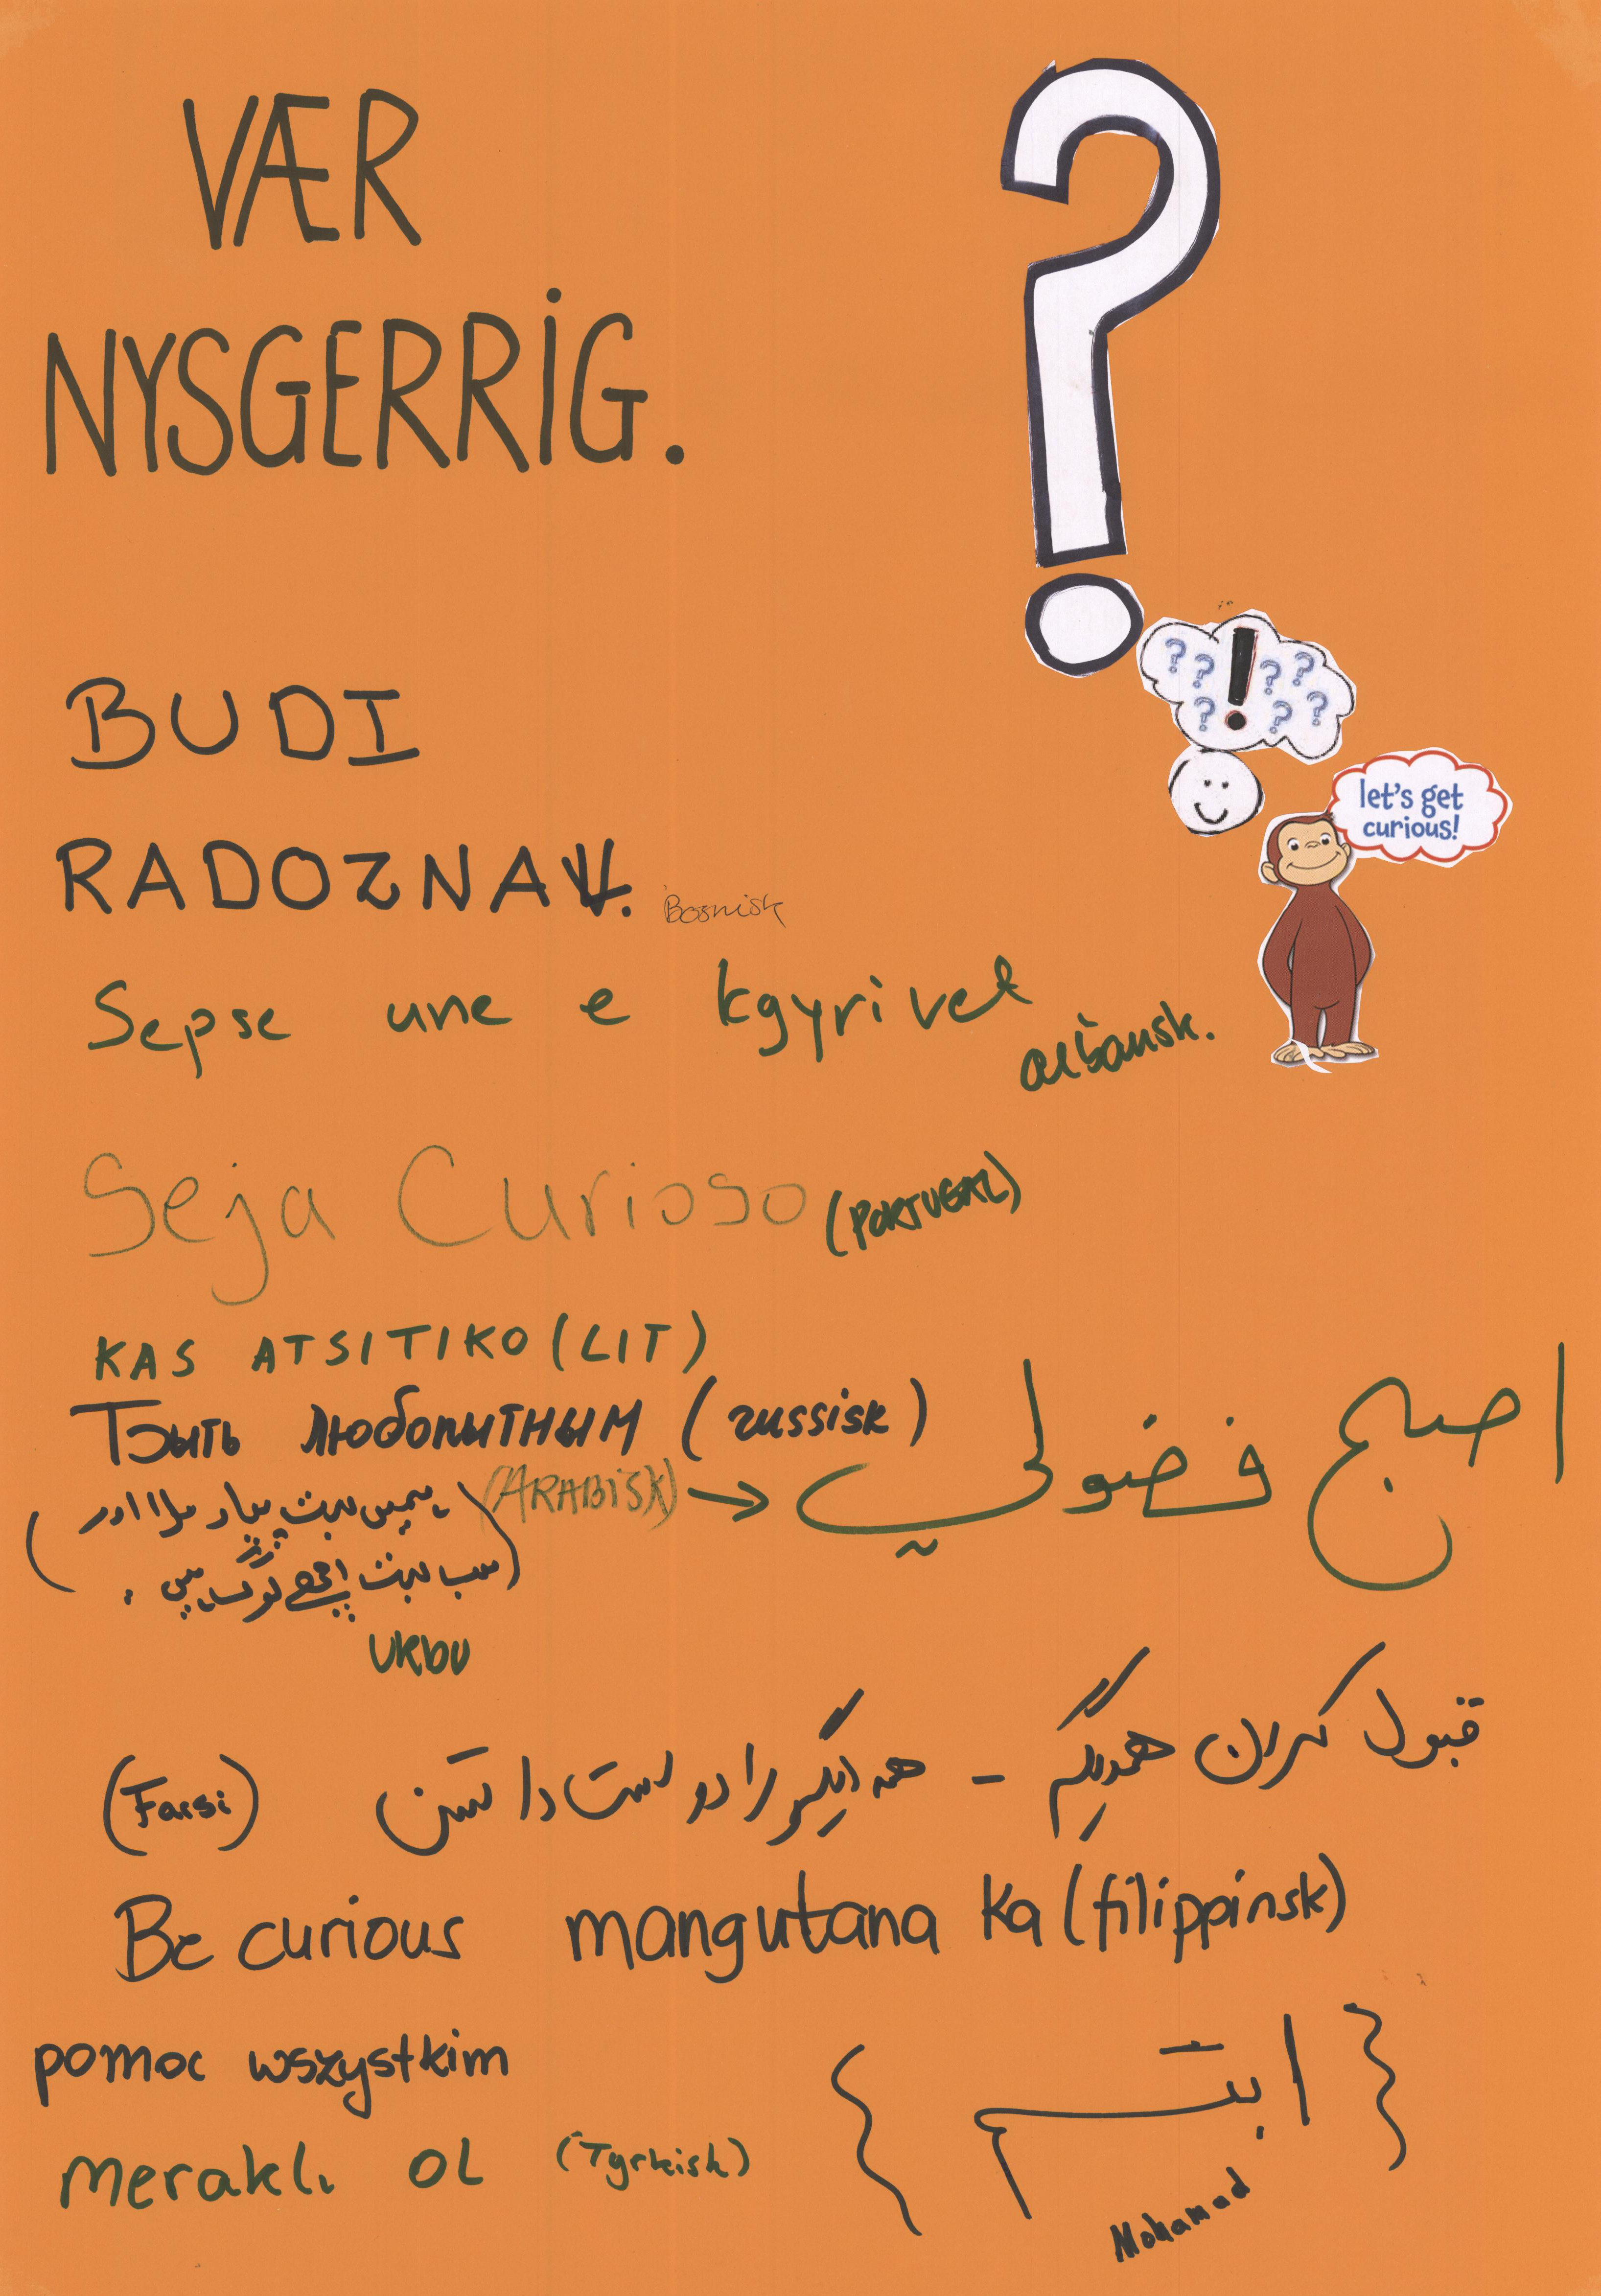 VÆR
NYSGERRIG.
?
? ? ! ? ? ? ? ?
let's get
curious!
BUDI
RADOZNAV. Bosnisk
Sepse une e kgyrivet
albansk.
Seja Curioso (PORTUGAL)
KAS ATSITIKO (LIT)
Быть любопитным (russisk)
(ARABISK) → اصبح فضولي
سب بہت اچھے لوگ ہیں
URDU
قبول کردن همدیگر - همدیگر را دوست داشتن (Farsi)
Be curious mangutana ka (filippinsk)
pomoc wszystkim
{ ابتسم }
merakLı OL (Tyrkisk)
Mohamad